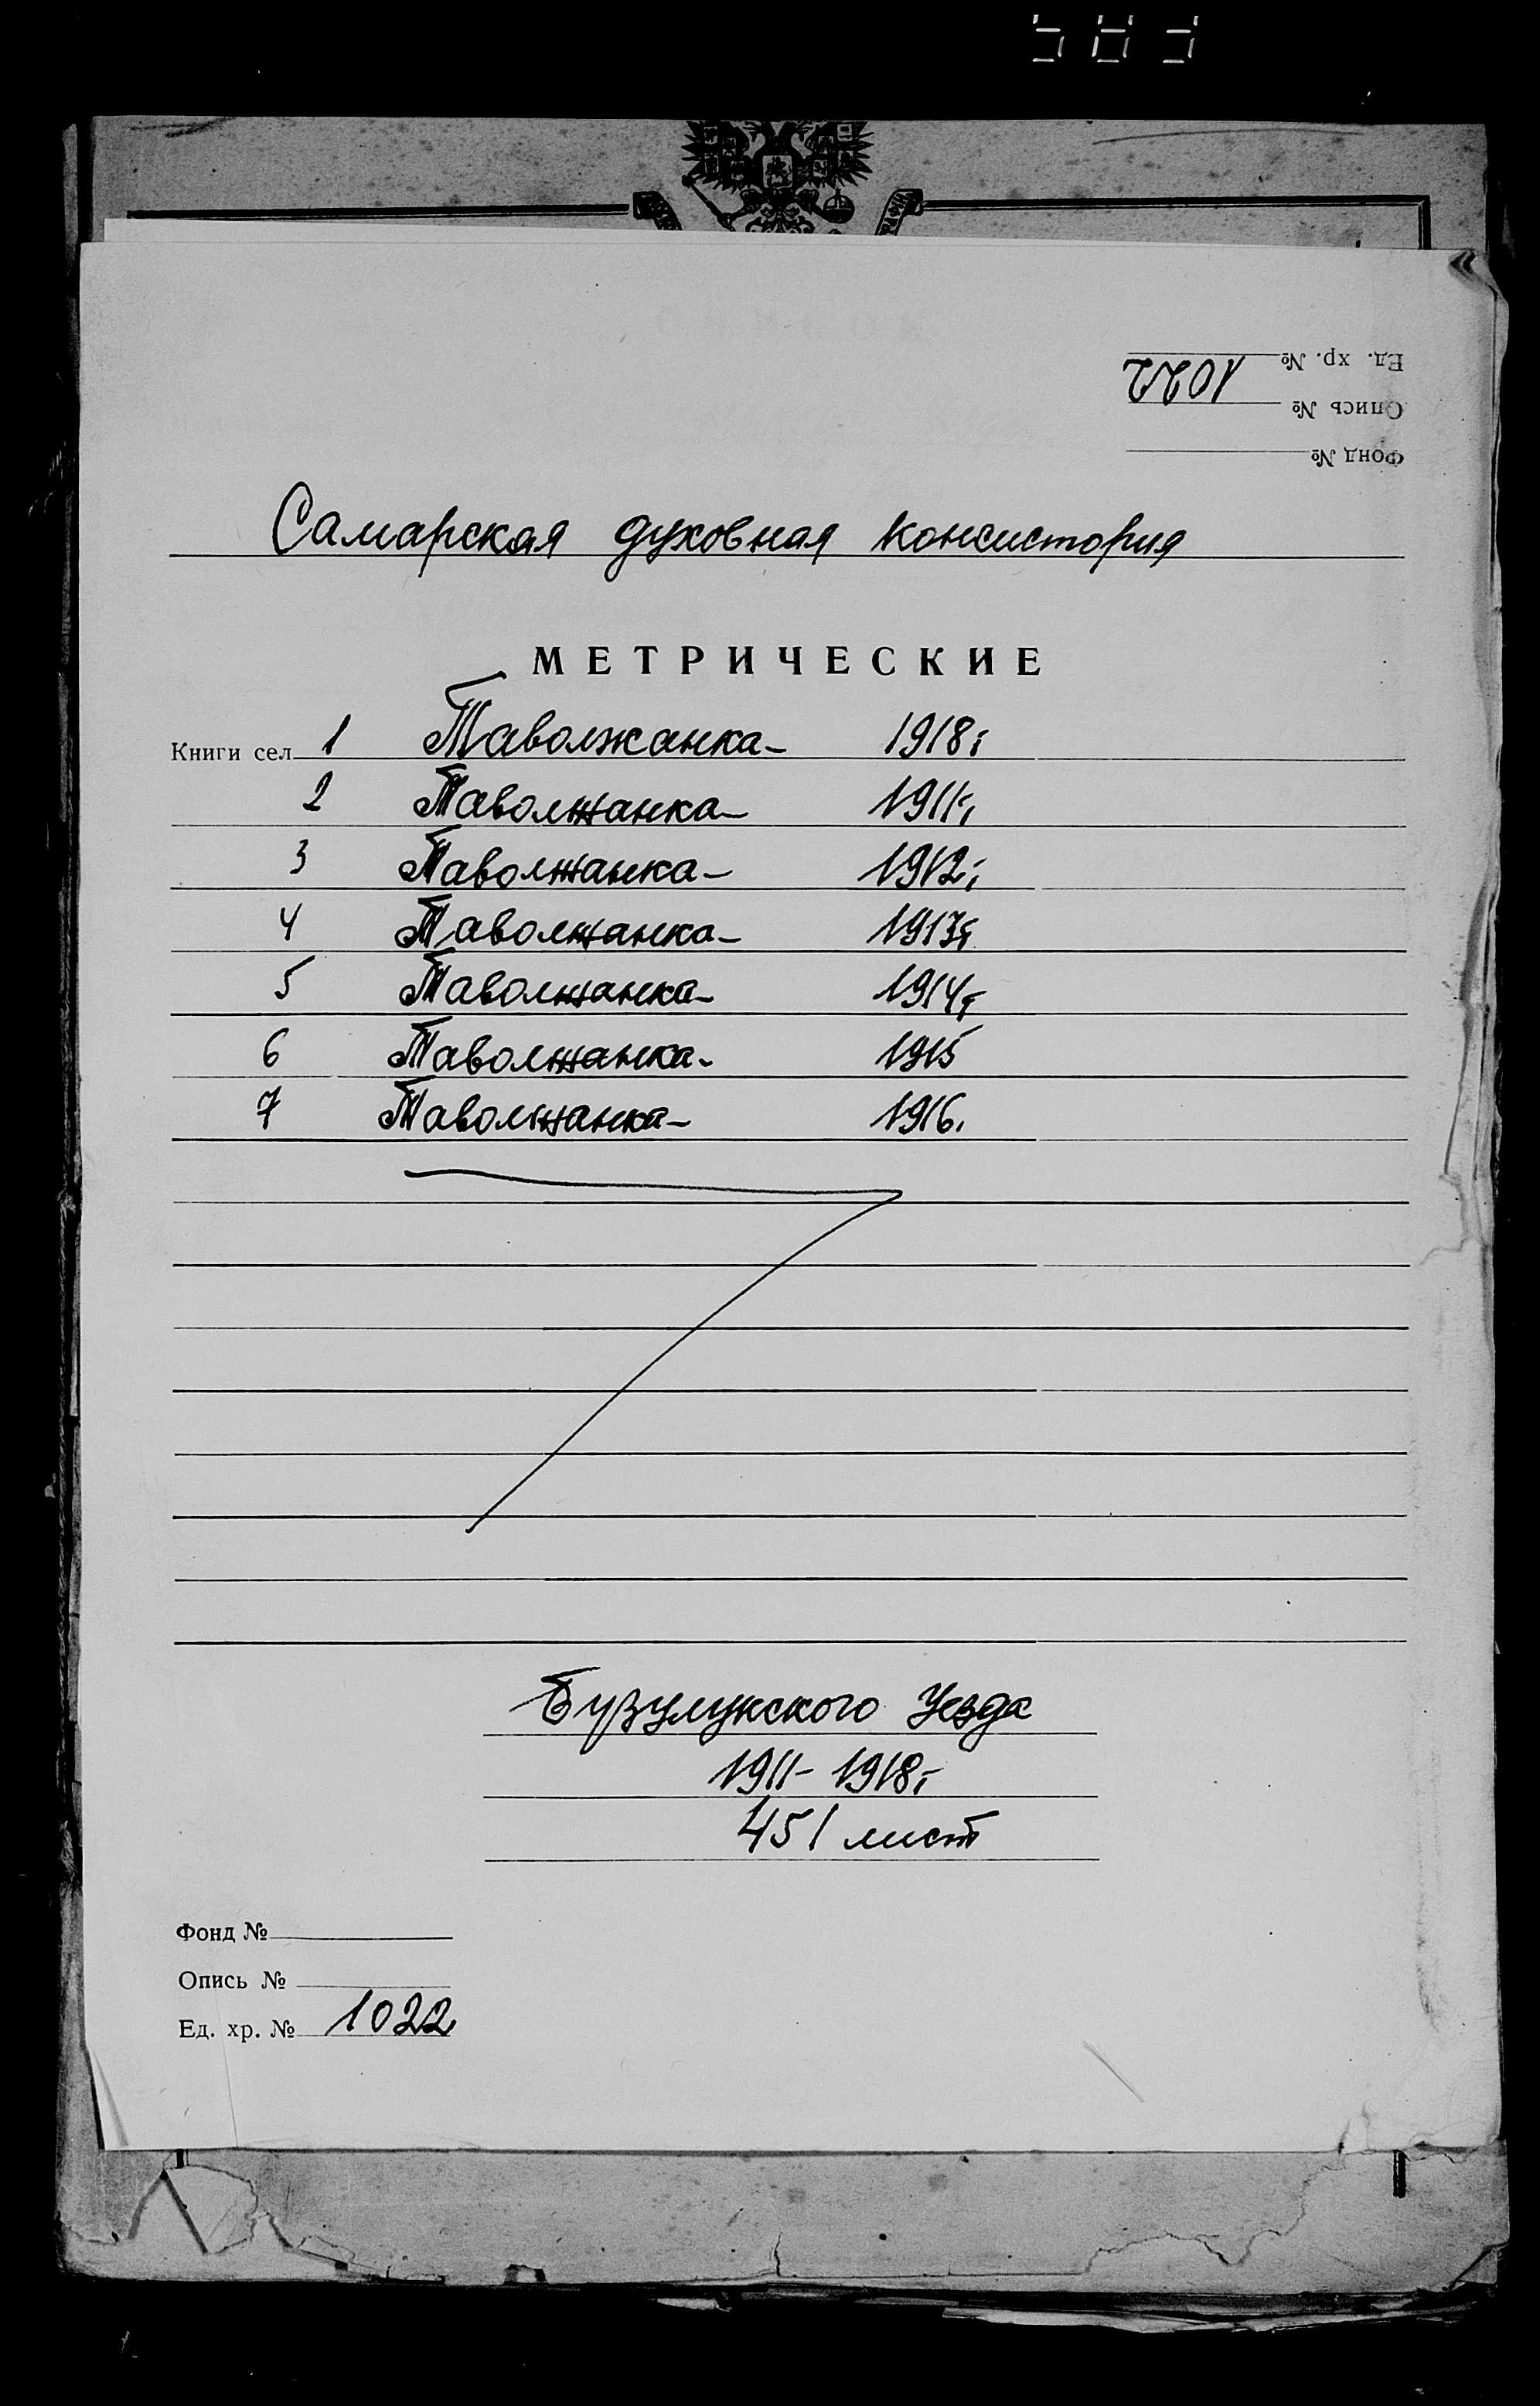 Ед. хр. №
Опись № 1022
Фонд №
Самарская духовная консистория
МЕТРИЧЕСКИЕ
Книги сел 1 Таволжанка - 1918г
2 Таволжанка - 1911г
3 Таволжанка - 1912г
4 Таволжанка - 1913г
5 Таволжанка - 1914г
6 Таволжанка - 1915
7 Таволжанка - 1916.
Бузулукского Уезда
1911 - 1918г
451 лист
Фонд №
Опись №
Ед. хр. № 1022